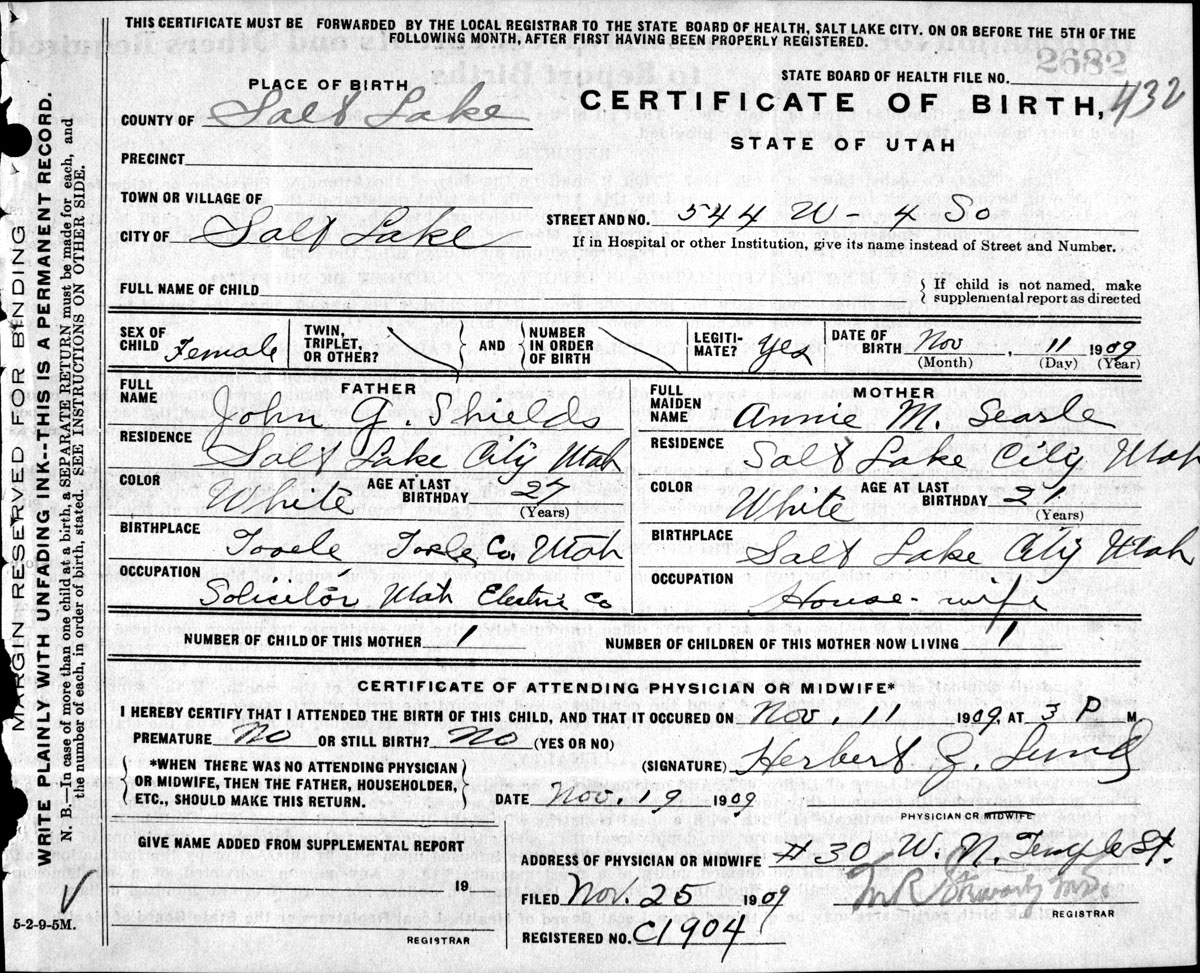 THIS CERTIFICATE MUST BE FORWARDED BY THE LOCAL REGISTRAR TO THE STATE BOARD OF HEALTH, SALT LAKE CITY. ON OR BEFORE THE 5TH OF THE
FOLLOWING MONTH, AFTER FIRST HAVING BEEN PROPERLY REGISTERED.
2682
STATE BOARD OF HEALTH FILE NO.
PLACE OF BIRTH
CERTIFICATE OF BIRTH, 432
COUNTY OF Salt Lake
STATE OF UTAH
PRECINCT
TOWN OR VILLAGE OF
STREET AND NO. 544 W - 4 So
CITY OF Salt Lake
If in Hospital or other Institution, give its name instead of Street and Number.
FULL NAME OF CHILD
{ If child is not named, make
supplemental report as directed
SEX OF CHILD Female
TWIN, TRIPLET, OR OTHER?
AND
NUMBER IN ORDER OF BIRTH
LEGITI-MATE? Yes
DATE OF BIRTH Nov, 11 1909
(Month) (Day) (Year)
FATHER
FULL NAME John G. Shields
RESIDENCE Salt Lake City Utah
COLOR White AGE AT LAST BIRTHDAY 27
(Years)
BIRTHPLACE Tooele Tooele Co. Utah
OCCUPATION Solicitor Utah Electric Co
MOTHER
FULL MAIDEN NAME Annie M. Searle
RESIDENCE Salt Lake City Utah
COLOR White AGE AT LAST BIRTHDAY 21
(Years)
BIRTHPLACE Salt Lake City Utah
OCCUPATION House-wife
NUMBER OF CHILD OF THIS MOTHER 1 NUMBER OF CHILDREN OF THIS MOTHER NOW LIVING 1
CERTIFICATE OF ATTENDING PHYSICIAN OR MIDWIFE*
I HEREBY CERTIFY THAT I ATTENDED THE BIRTH OF THIS CHILD, AND THAT IT OCCURED ON Nov. 11 1909, AT 3 P M
PREMATURE No OR STILL BIRTH? No (YES OR NO)
*WHEN THERE WAS NO ATTENDING PHYSICIAN
OR MIDWIFE, THEN THE FATHER, HOUSEHOLDER,
ETC., SHOULD MAKE THIS RETURN.
(SIGNATURE) Herbert Z. Lund
DATE Nov. 19 1909
PHYSICIAN OR MIDWIFE
GIVE NAME ADDED FROM SUPPLEMENTAL REPORT
19
REGISTRAR
ADDRESS OF PHYSICIAN OR MIDWIFE #30 W. N. Temple St.
FILED Nov. 25 1909
REGISTRAR
REGISTERED NO. C1904
5-2-9-5M.
MARGIN RESERVED FOR BINDING
WRITE PLAINLY WITH UNFADING INK--THIS IS A PERMANENT RECORD.
N. B.—In case of more than one child at a birth, a SEPARATE RETURN must be made for each, and
the number of each, in order of birth, stated. SEE INSTRUCTIONS ON OTHER SIDE.